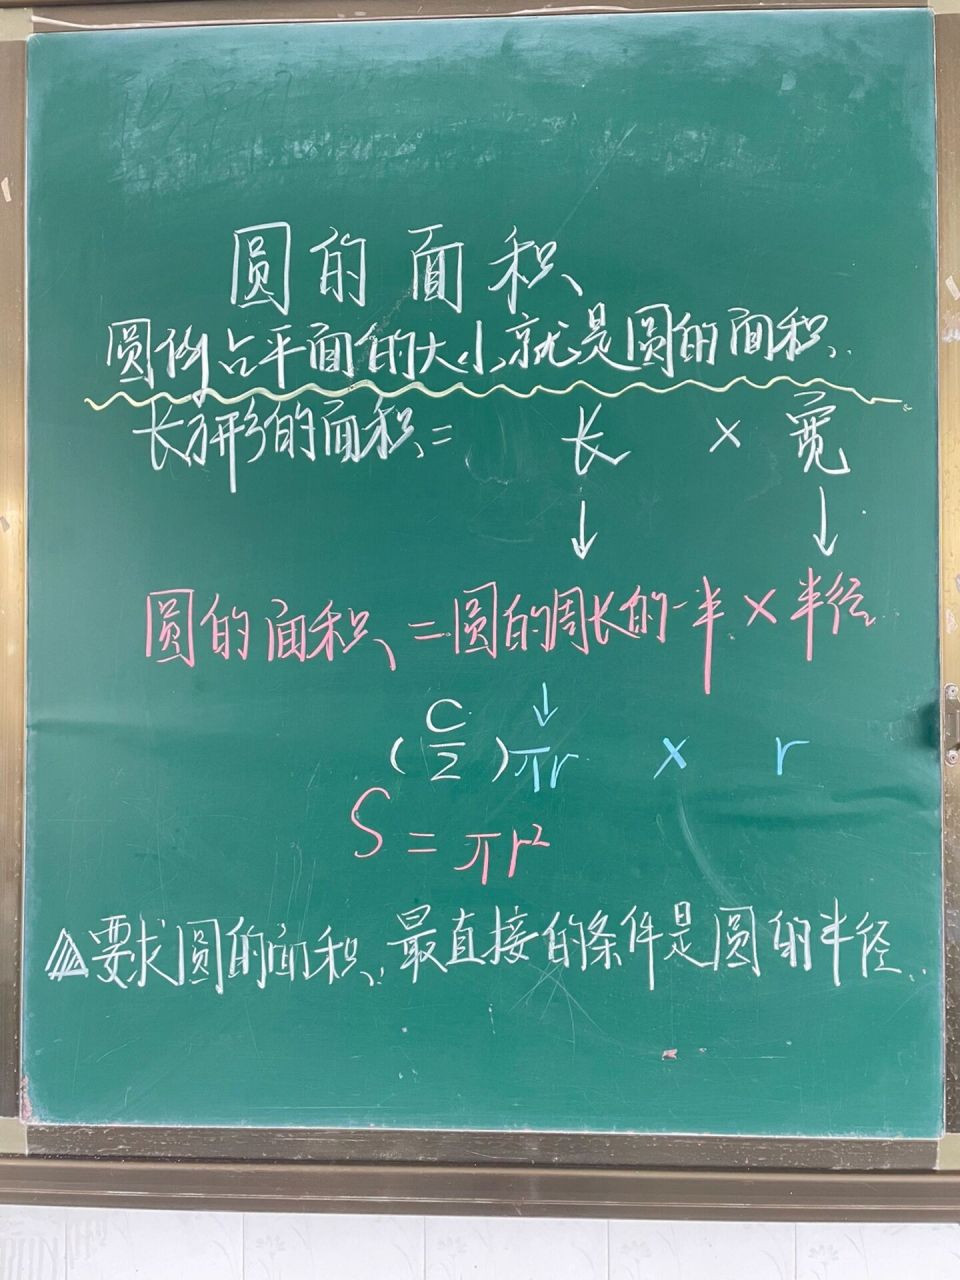 圆的面积
圆所占平面的大小就是圆的面积.
长方形的面积= 长 × 宽
↓ ↓
圆的面积=圆的周长的一半×半径
↓
(C/2)πr × r
S=πr²
△要求圆的面积,最直接的条件是圆的半径.